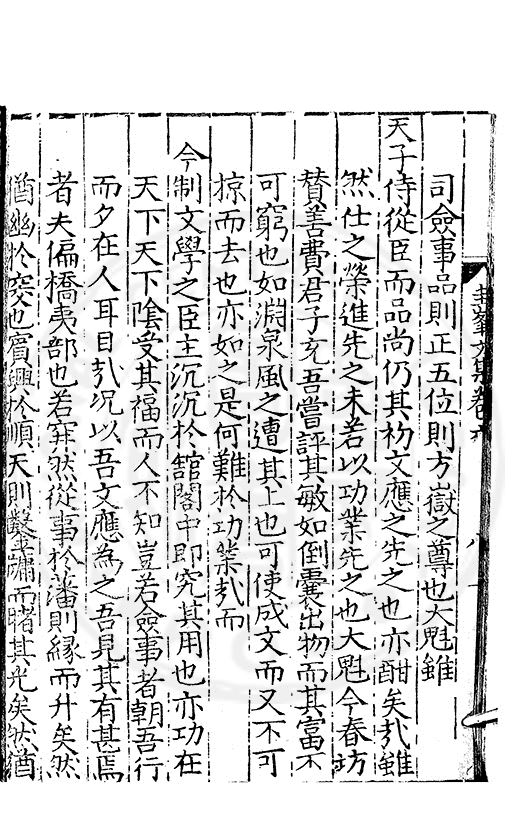 司僉事品則正五位則方嶽之尊也大魁雖
天子侍從臣而品尚仍其初文應之先之也亦酣矣㦲雖
然仕之榮進先之未若以功業先之也大魁今春坊
賛善費君子充吾嘗評其敏如倒囊出物而其富不
可窮也如淵泉風之遭其上也可使成文而又不可
掠而去也亦如之是何難於功業㦲而
今制文學之臣主沉沉於舘閣中即究其用也亦功在
天下天下陰受其福而人不知豈若僉事者朝吾行
而夕在人耳目㦲況以吾文應為之吾見其有甚焉
者夫偏橋夷部也若穽然從事於藩則緣而升矣然
猶幽於窔也賓興於順天則鑿牖而睹其光矣然猶
文集卷
八